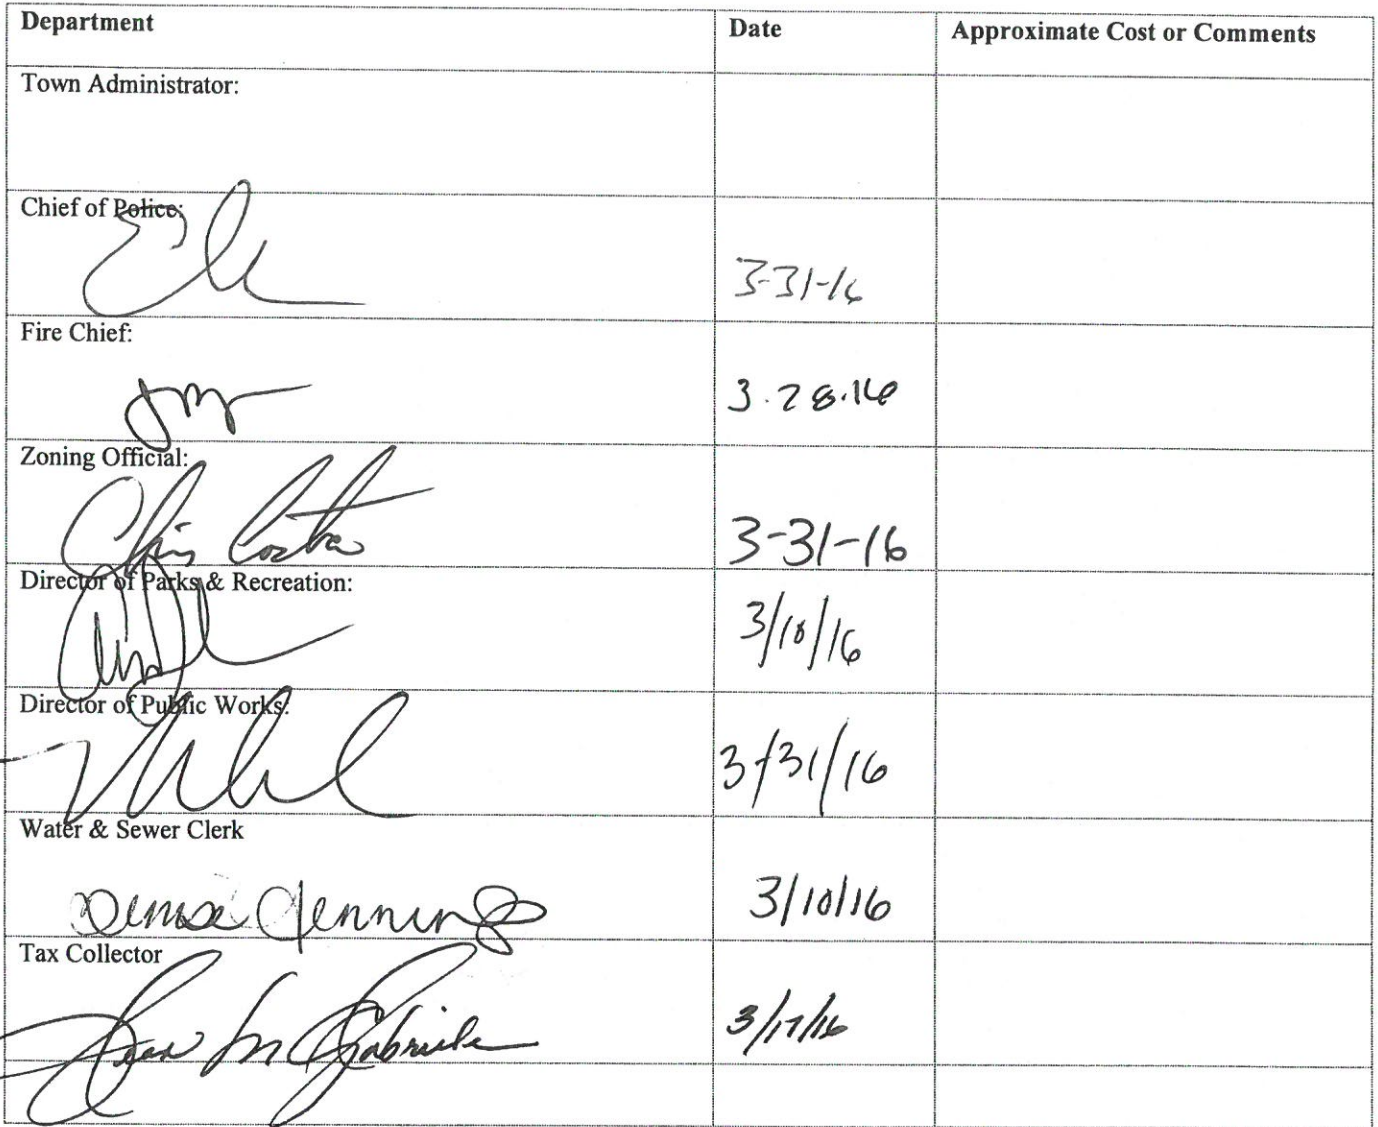 Department Date Approximate Cost or Comments
Town Administrator:
Chief of Police:
3-31-16
Fire Chief:
3.28.16
Zoning Official:
Chris Costa 3-31-16
Director of Parks & Recreation:
3/10/16
Director of Public Works:
3/31/16
Water & Sewer Clerk
Denise Jennings 3/10/16
Tax Collector
M Gabriele 3/17/16